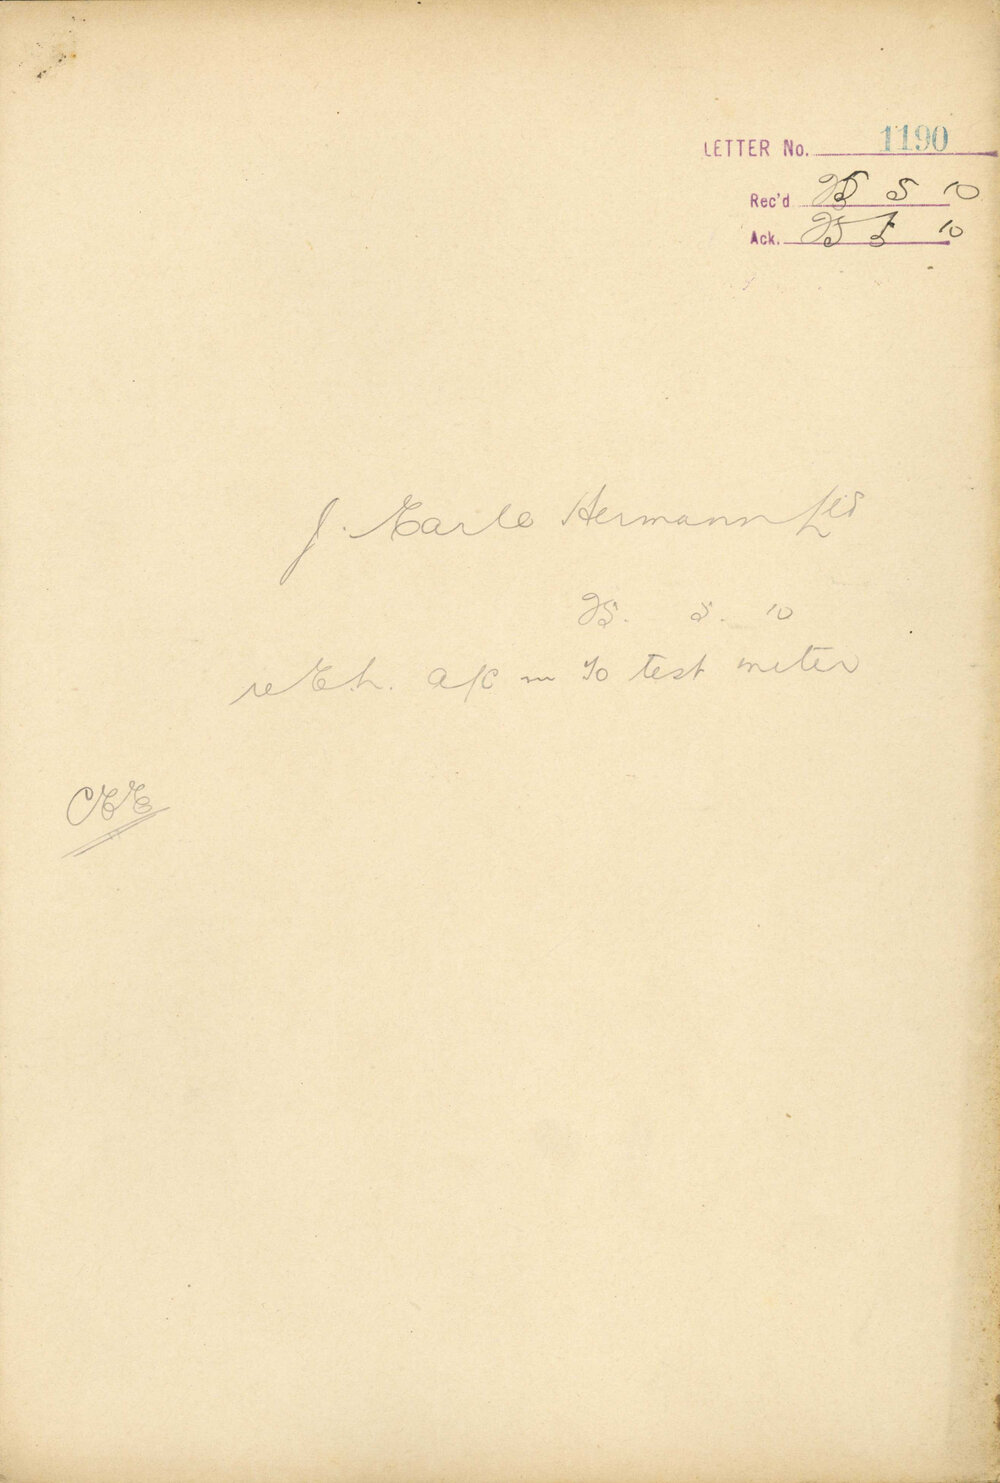 LETTER No. 1190
Rec'd 25 5 10
Ack. 25 5 10
J. Earle Hermann Ltd
25. 5. 10
re E.L. a/c to test meter
CEE